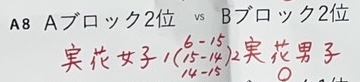 A8 Aブロック2位 vs Bブロック2位
6-15
実花女子 1(15-14)2 実花男子
14-15 ○